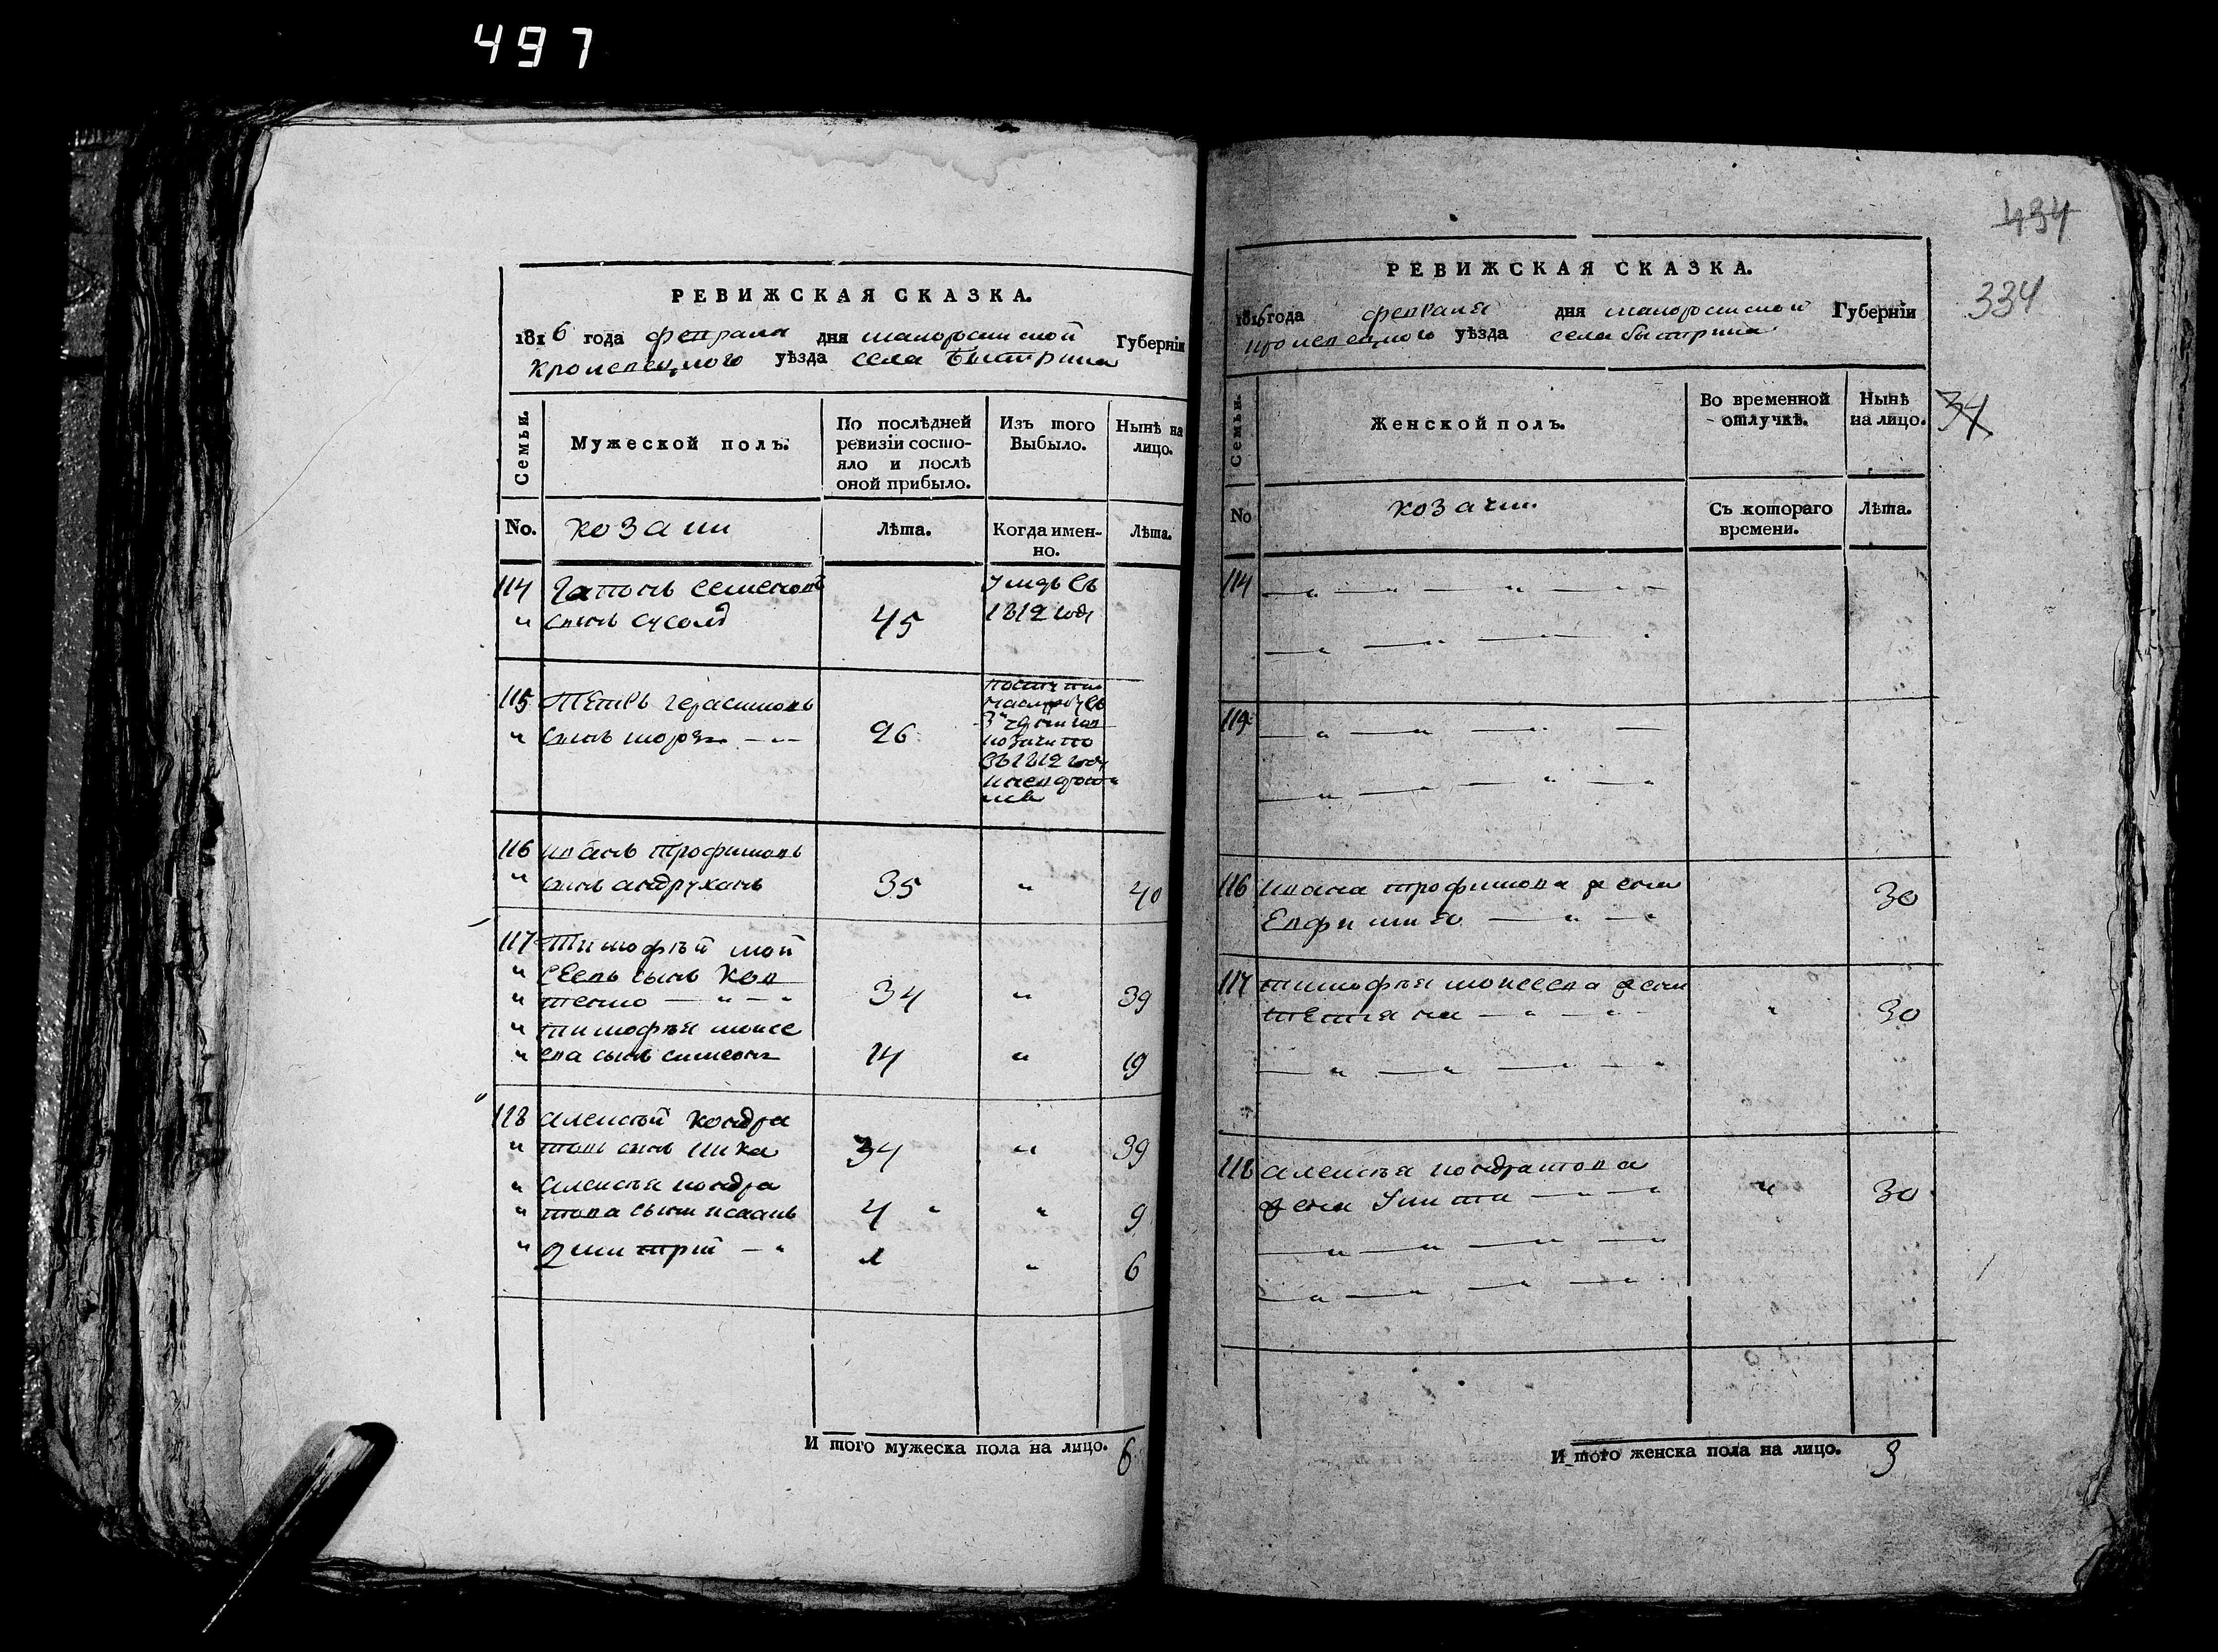 497
РЕВИЖСКАЯ СКАЗКА.
1816 года февраля дня малоросиской Губерніи
кролевецкого уѣзда села быстрика
Семьи.
Мужеской полъ.
По послѣдней ревизіи состояло и послѣ оной прибыло.
Изъ того Выбыло.
Нынѣ на лицо.
No. козаки
Лѣта.
Когда именно.
Лѣта.
114 семеновъ
" сынъ 45
умръ въ
1812 году
115 Петръ герасимовъ
" сынъ 26
въ 1812 году
116 иванъ трофимовъ
" сынъ андруханъ 35 " 40
117 Тимофѣй мой
" сеевъ сынъ ков
" тенко — " — " 34 " 39
" тимофѣя моисе
" ева сынъ симеонъ 14 " 19
118 алексѣй кондра
" товъ сынъ шка 34 " 39
" алексѣя кондра
" това сыни исаакъ 4 " " 9
" дмитрій — " 1 " 6
И того мужеска пола на лицо. 6
434
334
34
РЕВИЖСКАЯ СКАЗКА.
1816 года февраля дня малоросиской Губерніи
кролевецкого уѣзда села быстрика
Семьи.
Женской полъ.
Во временной отлучкѣ.
Нынѣ на лицо.
No козачки
Съ котораго времени.
Лѣта.
114 — " — " — " — " —
— " — " — "
115 — " — " — " —
— " — " — " —
116 ивана трофимова жена
Евфимия — " — " 30
117 тимофѣя моисеева жена
тетяна — " — " — " 30
— " — " — " — "
118 алексѣя кондратова
жена Улита — " — " " 30
— " — " — " — "
— " — " — " — "
И того женска пола на лицо. 3